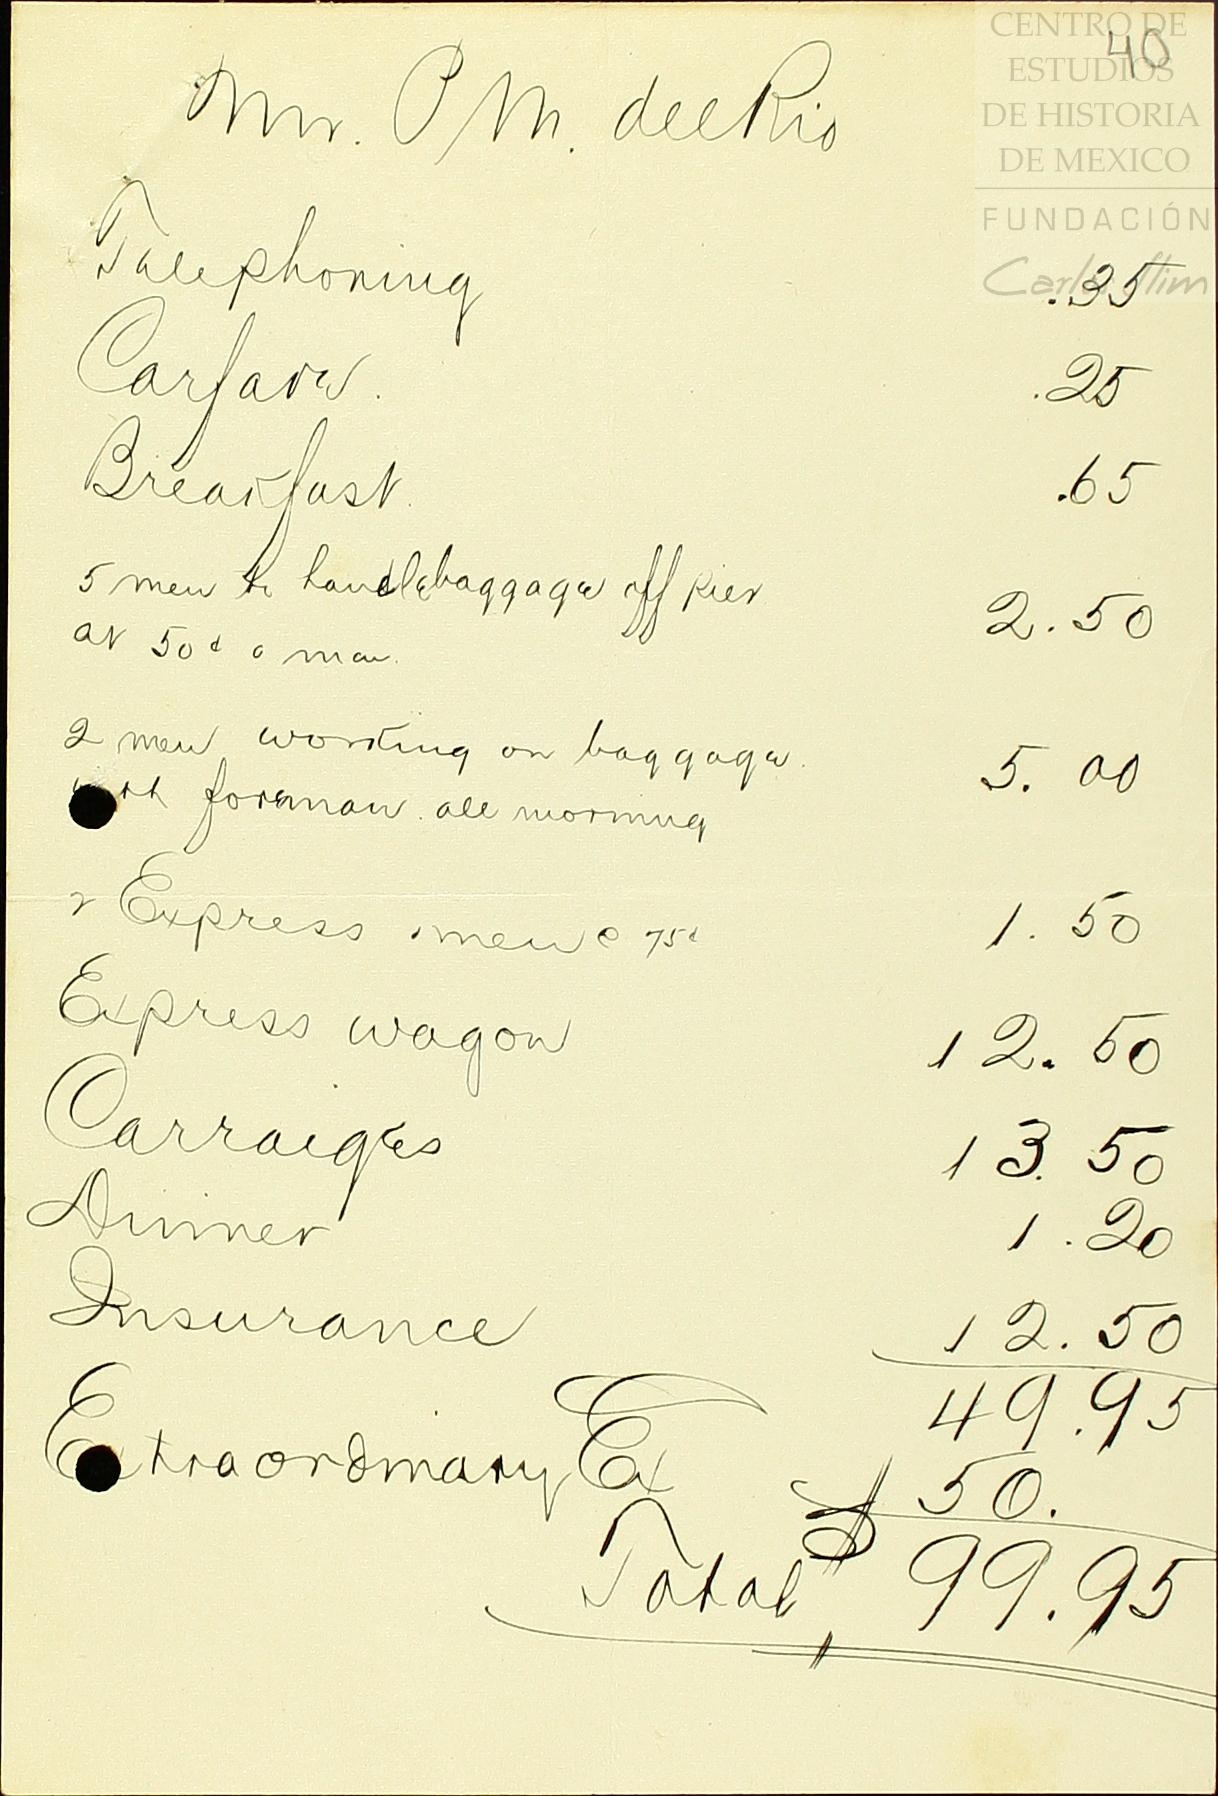 CENTRO DE
ESTUDIOS
DE HISTORIA
DE MEXICO
FUNDACIÓN
Carlos Slim
40
Mr. P M. del Rio
Telephoning .35
Carfare. .25
Breakfast. .65
5 men to handle baggage off pier
at 50¢ a man. 2.50
2 men working on baggage.
with foreman all morning 5.00
2 Express men @ 75¢ 1.50
Express wagon 12.50
Carraiges 13.50
Dinner 1.20
Insurance 12.50
49.95
Extraordinary Ex 50.
Total $ 99.95